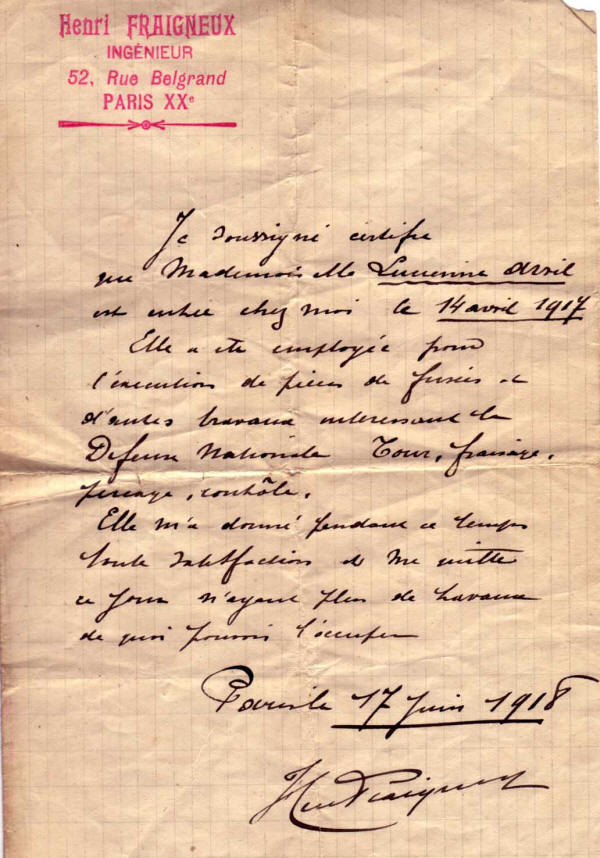 Henri FRAIGNEUX
INGÉNIEUR
52, Rue Belgrand
PARIS XXe
Je soussigné certifie
que Mademoiselle Lucienne Avril
est entrée chez moi le 14 avril 1917
Elle a été employée pour
l'éxécution de pièces de fusées et
d'autes travaux intéressant la
Défense Nationale Tour, fraisage,
perçage, contrôle.
Elle m'a donné pendant ce temps
toute satisfaction et me quitte
ce jour n'ayant plus de travaux
de quoi pouvoir l'occuper
Paris le 17 Juin 1918